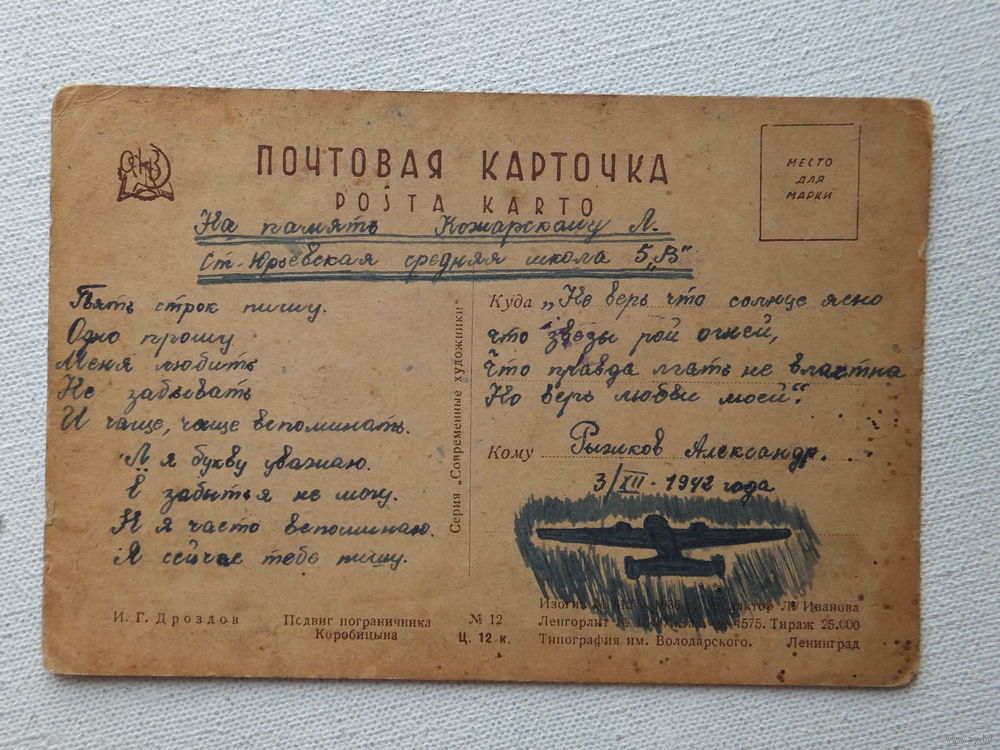 ПОЧТОВАЯ КАРТОЧКА
POŜTA KARTO
МЕСТО
ДЛЯ
МАРКИ
На память Комарскому Л.
Ст-Юрьевская средняя школа 5„В"
Пять строк пишу.
Одно прошу
Меня любить
Не забывать
И чаще, чаще вспоминать.
Л я букву уважаю.
Ё забыть я не могу.
Н я часто вспоминаю.
Я сейчас тебе пишу.
Серия „Современные художники"
Куда „Не верь что солнце ясно
что звезды рой огней,
Что правда лгать не властна
Но верь любви моей".
Кому Рыжков Александр.
3/XII-1942 года
И. Г. Дроздов
Подвиг пограничника
Коробицына
№ 12
Ц. 12 к.
Изогиз № Л. Иванова
Ленгорлит № 4575. Тираж 25.000
Типография им. Володарского. Ленинград
www.ay.by